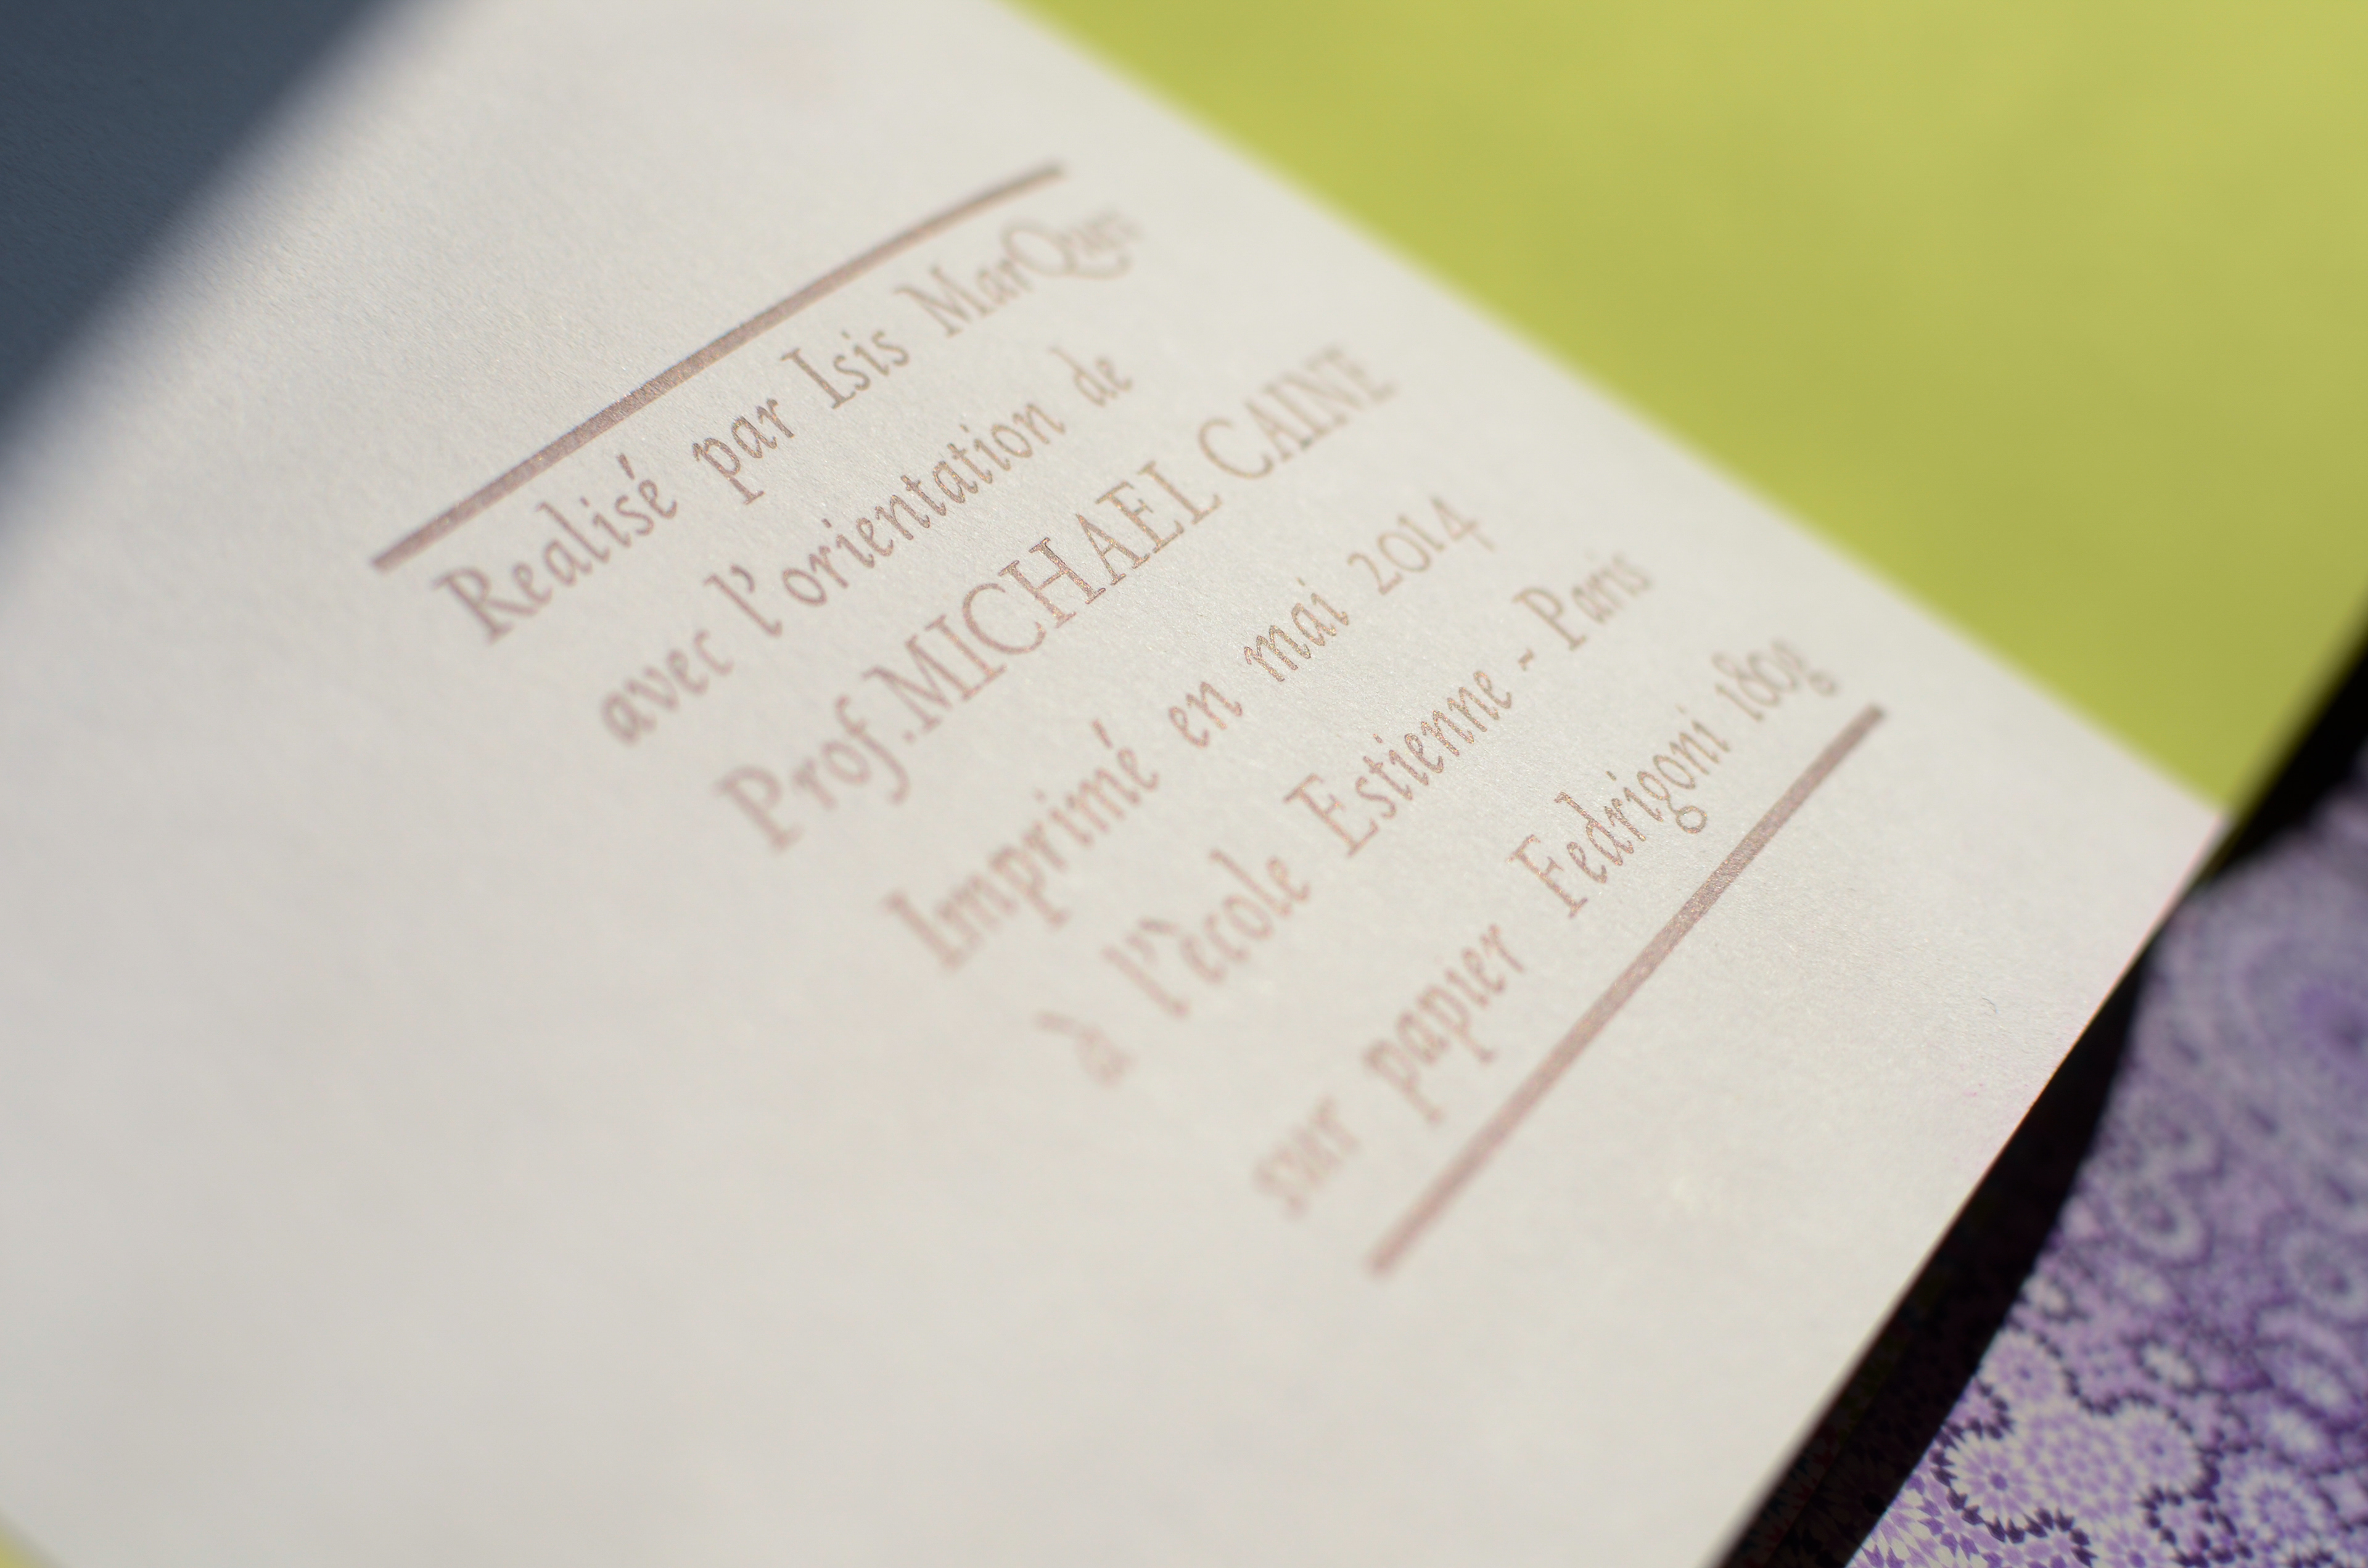 Realisé par Isis MarQues
avec l'orientation de
Prof. MICHAEL CAINE
Imprimé en mai 2014
à l'ècole Estienne ~ Paris
sur papier Fedrigoni 180g